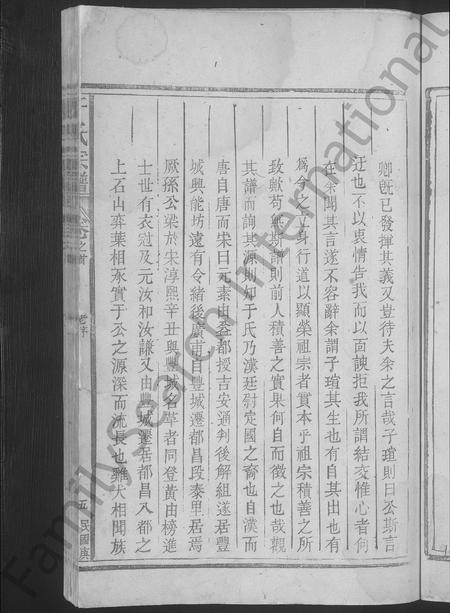 卿既已發揮其義又豈待夫余之言哉子瑄則曰公斯言
迂也不以衷情告我而以面諛拒我所謂結交惟心者何
在余聞其言遂不容辭余謂子瑄其生也有自其出也有
爲今之立身行道以顯榮祖宗者實本乎祖宗積善之所
致歟苟無斯譜則前人積善之實果何自而徵之也哉觀
其譜而詢其源則知于氏乃漢廷尉定國之裔也自漢而
唐自唐而宋曰元素由益都授吉安通判後解組遂居豐
城興能坊遠有令緒後廣甫自豐城遷都昌段泰里居焉
厥孫公梁於宋淳熙辛丑與豐城名革者同登黃由榜進
士世有衣冠及元汝和汝謙又由豐城遷居都昌八都之
上石山弈葉相承實于公之源深而流長也雖犬相聞族
于氏宗譜
卷之首
老序
五
民國
FamilySearch International